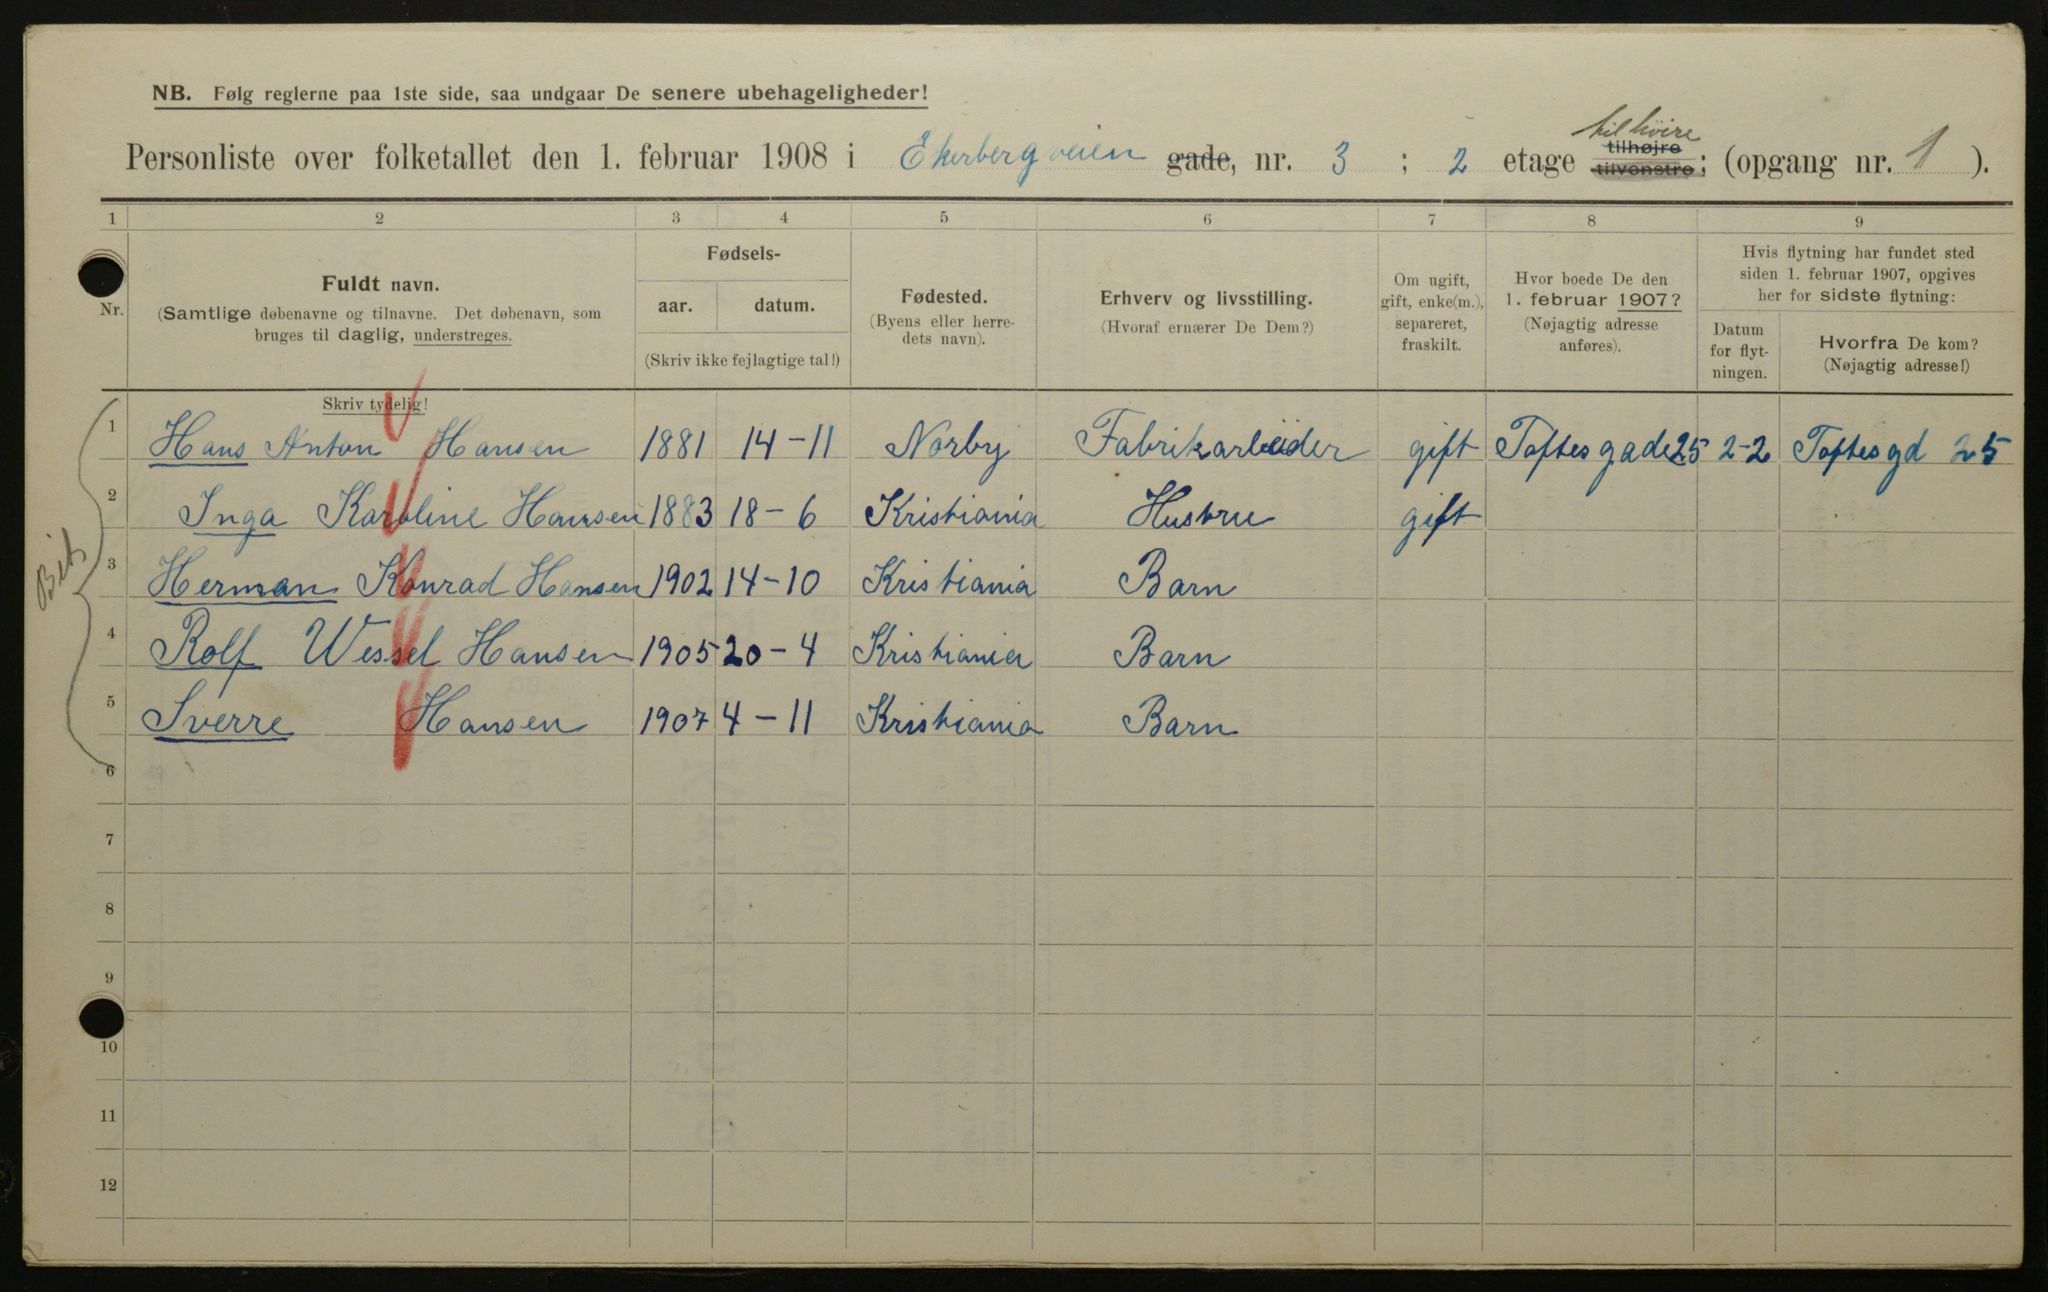 NB. Følg reglerne paa 1ste side, saa undgaar De senere ubehageligheder!
til høire
Personliste over folketallet den 1. februar 1908 i Ekerbergveien gade, nr. 3 ; 2 etage tilhøjre tilvenstre; (opgang nr. 1 ).
1 2 3 4 5 6 7 8 9
Nr.
Fuldt navn.
(Samtlige døbenavne og tilnavne. Det døbenavn, som
bruges til daglig, understreges.
Fødsels-
aar. datum.
(Skriv ikke fejlagtige tal!)
Fødested.
(Byens eller herre-
dets navn).
Erhverv og livsstilling.
(Hvoraf ernærer De Dem?)
Om ugift,
gift, enke(m.),
separeret,
fraskilt.
Hvor boede De den
1. februar 1907?
(Nøjagtig adresse
anføres).
Hvis flytning har fundet sted
siden 1. februar 1907, opgives
her for sidste flytning:
Datum
for flyt-
ningen.
Hvorfra De kom?
(Nøjagtig adresse!)
Skriv tydelig!
1 Hans Anton Hansen 1881 14-11 Norby Fabrikarbeider gift Toftes gade 25 2-2 Toftes gd 25
2 Inga Karoline Hansen 1883 18-6 Kristiania Hustru gift
3 Herman Konrad Hansen 1902 14-10 Kristiania Barn
4 Rolf Wessel Hansen 1905 20-4 Kristiania Barn
5 Sverre Hansen 1907 4-11 Kristiania Barn
6
7
8
9
10
11
12